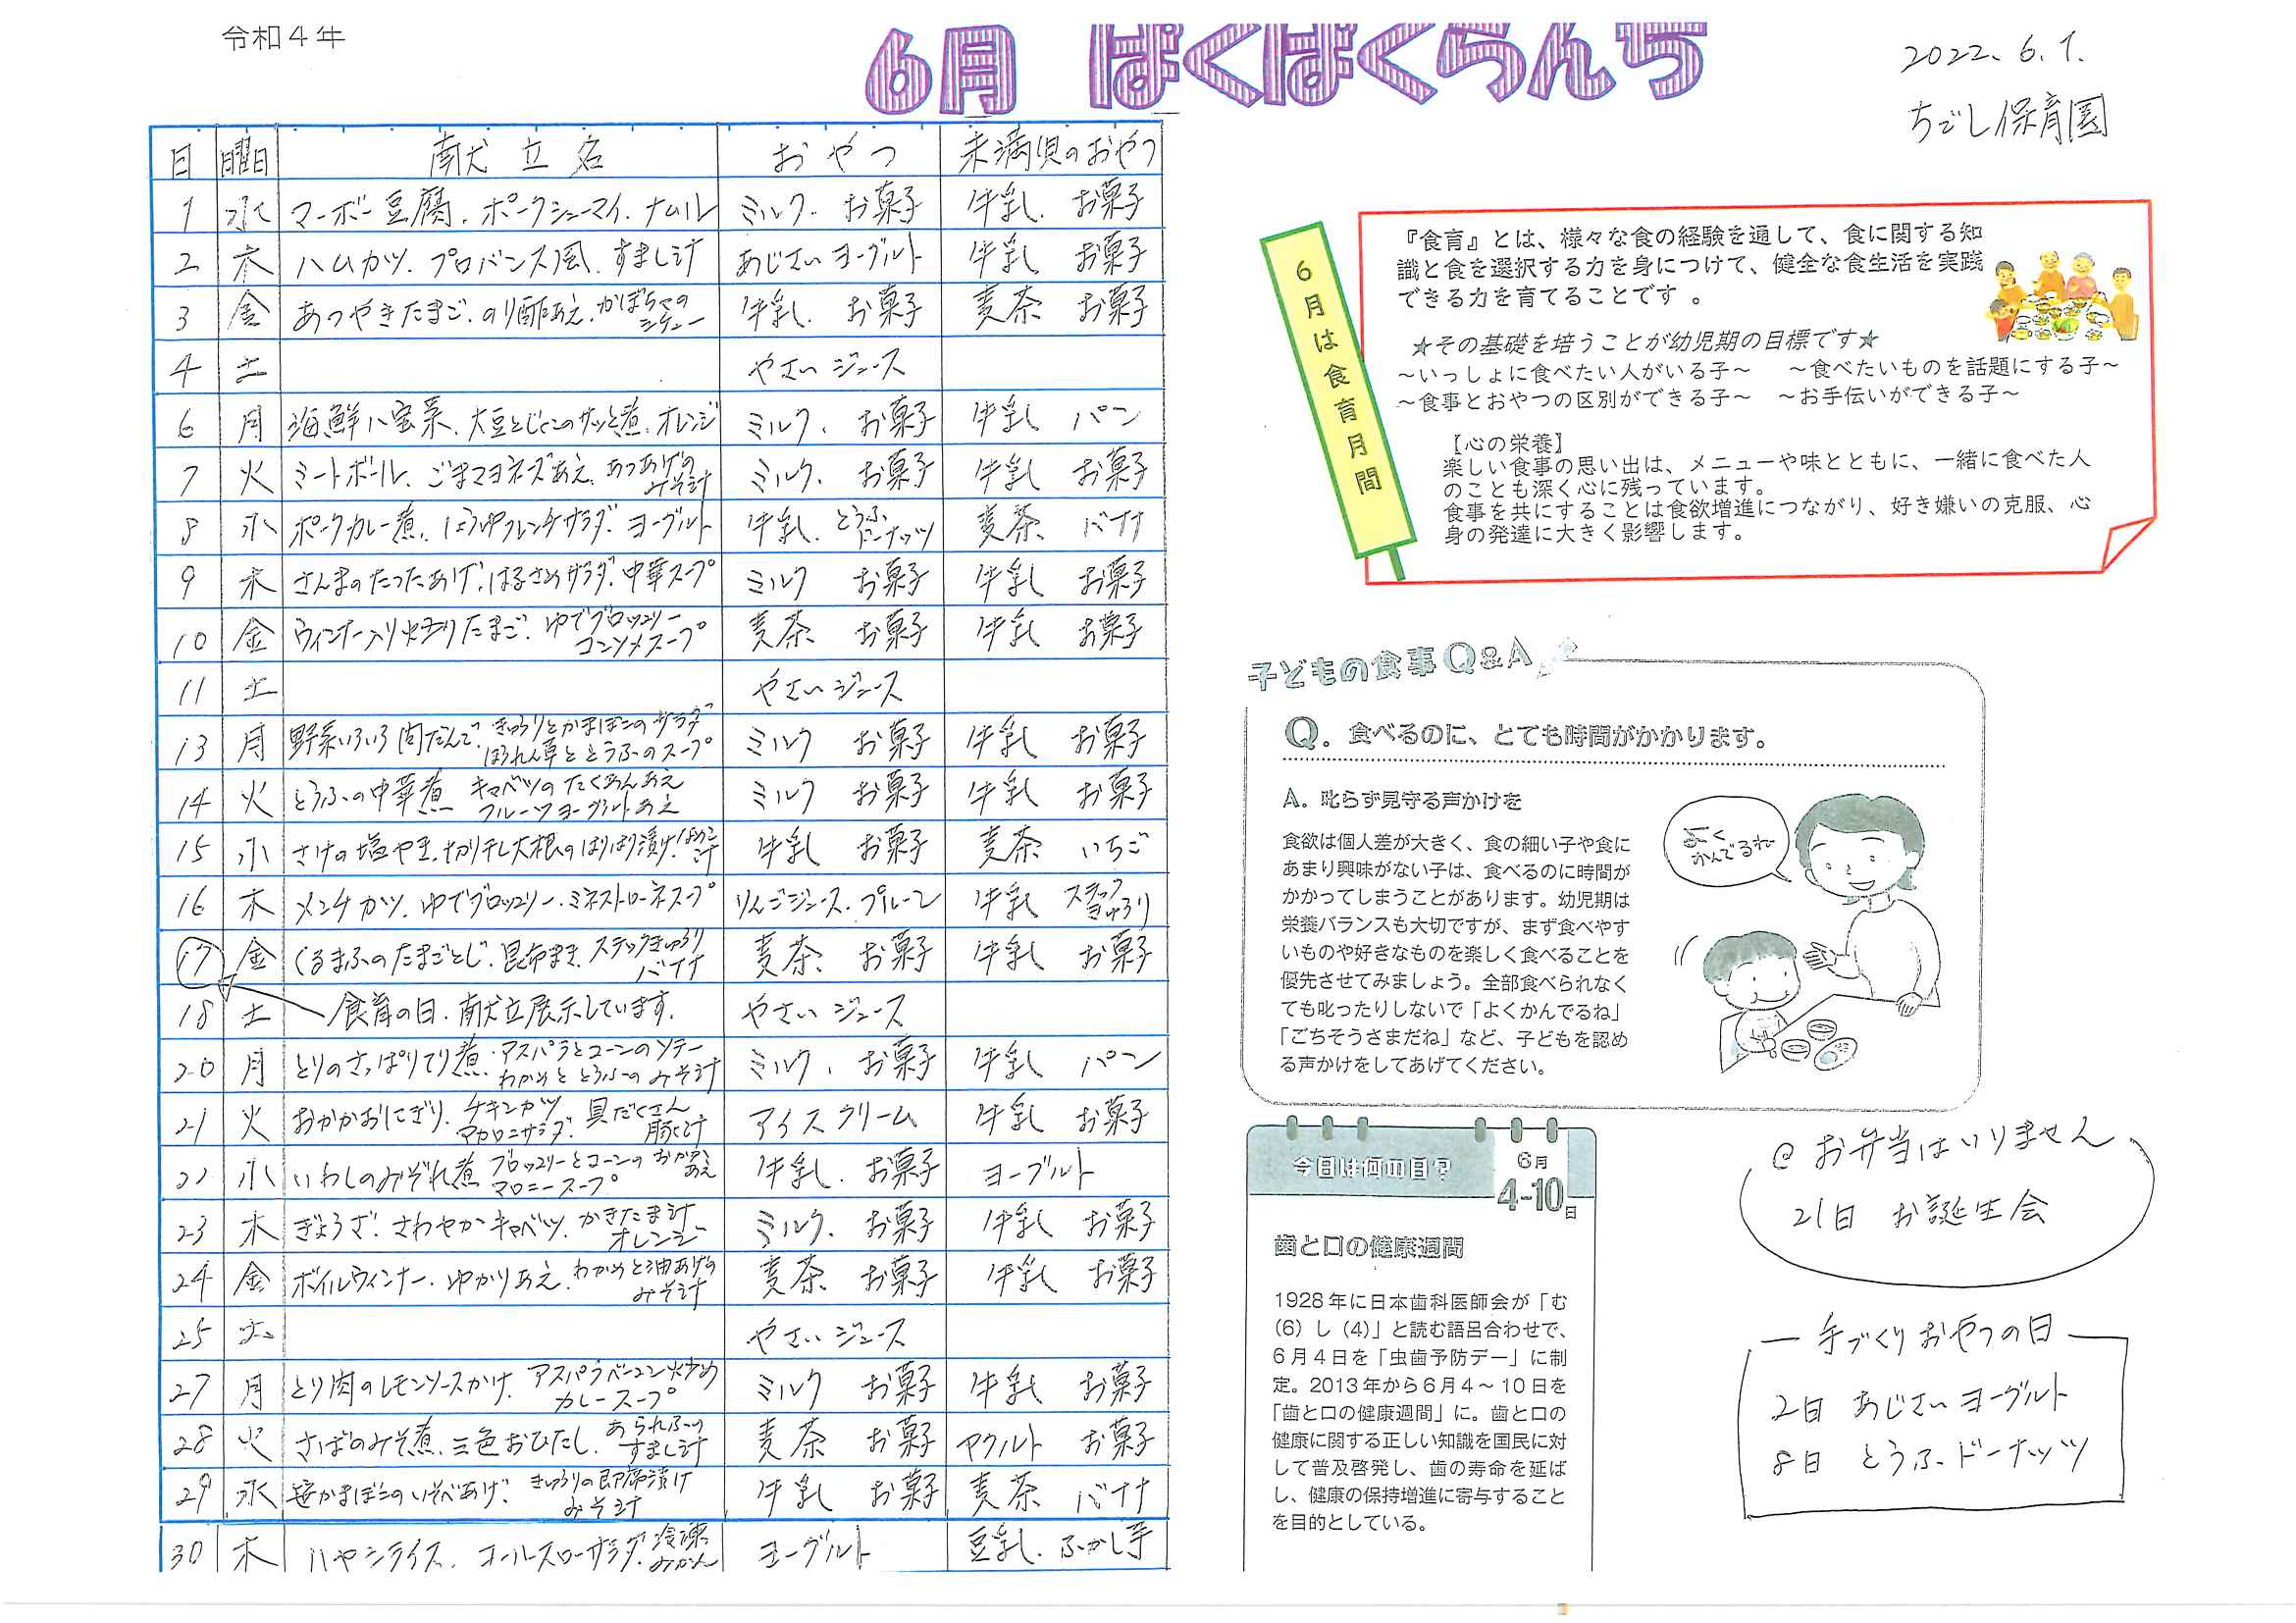 令和4年
6月 ぱくぱくらんち
2022. 6. 1.
ちごし保育園
日 曜日 献立名 おやつ 未満児のおやつ
1 水 マーボー豆腐、ポークシューマイ、ナムル ミルク、お菓子 牛乳、お菓子
2 木 ハムカツ、プロバンス風、すまし汁 あじさいヨーグルト 牛乳 お菓子
3 金 あつやきたまご、のり酢あえ、かぼちゃのシチュー 牛乳、お菓子 麦茶 お菓子
4 土 やさいジュース
6 月 海鮮八宝菜、大豆とじゃこのサッと煮、オレンジ ミルク、お菓子 牛乳 パン
7 火 ミートボール、ごまマヨネズあえ、あつあげのみそ汁 ミルク、お菓子 牛乳 お菓子
8 水 ポークカレー煮、しょうゆフレンチサラダ、ヨーグルト 牛乳、とうふドーナッツ 麦茶 バナナ
9 木 さんまのたつたあげ、はるさめサラダ、中華スープ ミルク お菓子 牛乳 お菓子
10 金 ウィンナー入り炒りたまご、ゆでブロッコリー コンソメスープ 麦茶 お菓子 牛乳 お菓子
11 土 やさいジュース
13 月 野菜いろいろ肉だんご、きゅうりとかまぼこのサラダ ほうれん草ととうふのスープ ミルク お菓子 牛乳 お菓子
14 火 とうふの中華煮 キャベツのたくあんあえ フルーツヨーグルトあえ ミルク お菓子 牛乳 お菓子
15 水 さけの塩やき、切り干し大根のぱりぱり漬け、なめこ汁 牛乳 お菓子 麦茶 いちご
16 木 メンチカツ、ゆでブロッコリー、ミネストローネスープ りんごジュース、プルーン 牛乳 スティックきゅうり
17 金 くるまふのたまごとじ、昆布まき、スティックきゅうり バナナ 麦茶 お菓子 牛乳 お菓子
18 土 食育の日、献立展示しています。 やさいジュース
20 月 とりのさっぱりてり煮、アスパラとコーンのソテー わかめととうふのみそ汁 ミルク、お菓子 牛乳 パン
21 火 おかかおにぎり、チキンカツ マカロニサラダ、具だくさん豚汁 アイスクリーム 牛乳 お菓子
22 水 いわしのみぞれ煮 ブロッコリーとコーンのおかかあえ マロニースープ 牛乳、お菓子 ヨーグルト
23 木 ぎょうざ、さわやかキャベツ、かきたま汁 オレンジ ミルク、お菓子 牛乳 お菓子
24 金 ボイルウィンナー、ゆかりあえ、わかめと油あげのみそ汁 麦茶 お菓子 牛乳 お菓子
25 土 やさいジュース
27 月 とり肉のレモンソースかけ、アスパラベーコン炒め カレースープ ミルク お菓子 牛乳 お菓子
28 火 さばのみそ煮、三色おひたし、あられふのすまし汁 麦茶 お菓子 ヤクルト お菓子
29 水 笹かまぼこのいそべあげ、きゅうりの即席漬け みそ汁 牛乳 お菓子 麦茶 バナナ
30 木 ハヤシライス、コールスローサラダ、冷凍みかん ヨーグルト 豆乳、ふかし芋
6月は食育月間
『食育』とは、様々な食の経験を通して、食に関する知
識と食を選択する力を身につけて、健全な食生活を実践
できる力を育てることです 。
★その基礎を培うことが幼児期の目標です★
～いっしょに食べたい人がいる子～ ～食べたいものを話題にする子～
～食事とおやつの区別ができる子～ ～お手伝いができる子～
【心の栄養】
楽しい食事の思い出は、メニューや味とともに、一緒に食べた人
のことも深く心に残っています。
食事を共にすることは食欲増進につながり、好き嫌いの克服、心
身の発達に大きく影響します。
子どもの食事Q&A
Q. 食べるのに、とても時間がかかります。
A. 叱らず見守る声かけを
食欲は個人差が大きく、食の細い子や食に
あまり興味がない子は、食べるのに時間が
かかってしまうことがあります。幼児期は
栄養バランスも大切ですが、まず食べやす
いものや好きなものを楽しく食べることを
優先させてみましょう。全部食べられなく
ても叱ったりしないで「よくかんでるね」
「ごちそうさまだね」など、子どもを認め
る声かけをしてあげてください。
よく
かんでるね
今日は何の日?
6月
4-10日
歯と口の健康週間
1928年に日本歯科医師会が「む
(6)し(4)」と読む語呂合わせで、
6月4日を「虫歯予防デー」に制
定。2013年から6月4～10日を
「歯と口の健康週間」に。歯と口の
健康に関する正しい知識を国民に対
して普及啓発し、歯の寿命を延ば
し、健康の保持増進に寄与すること
を目的としている。
@ お弁当はいりません
21日 お誕生会
手づくりおやつの日
2日 あじさいヨーグルト
8日 とうふドーナッツ